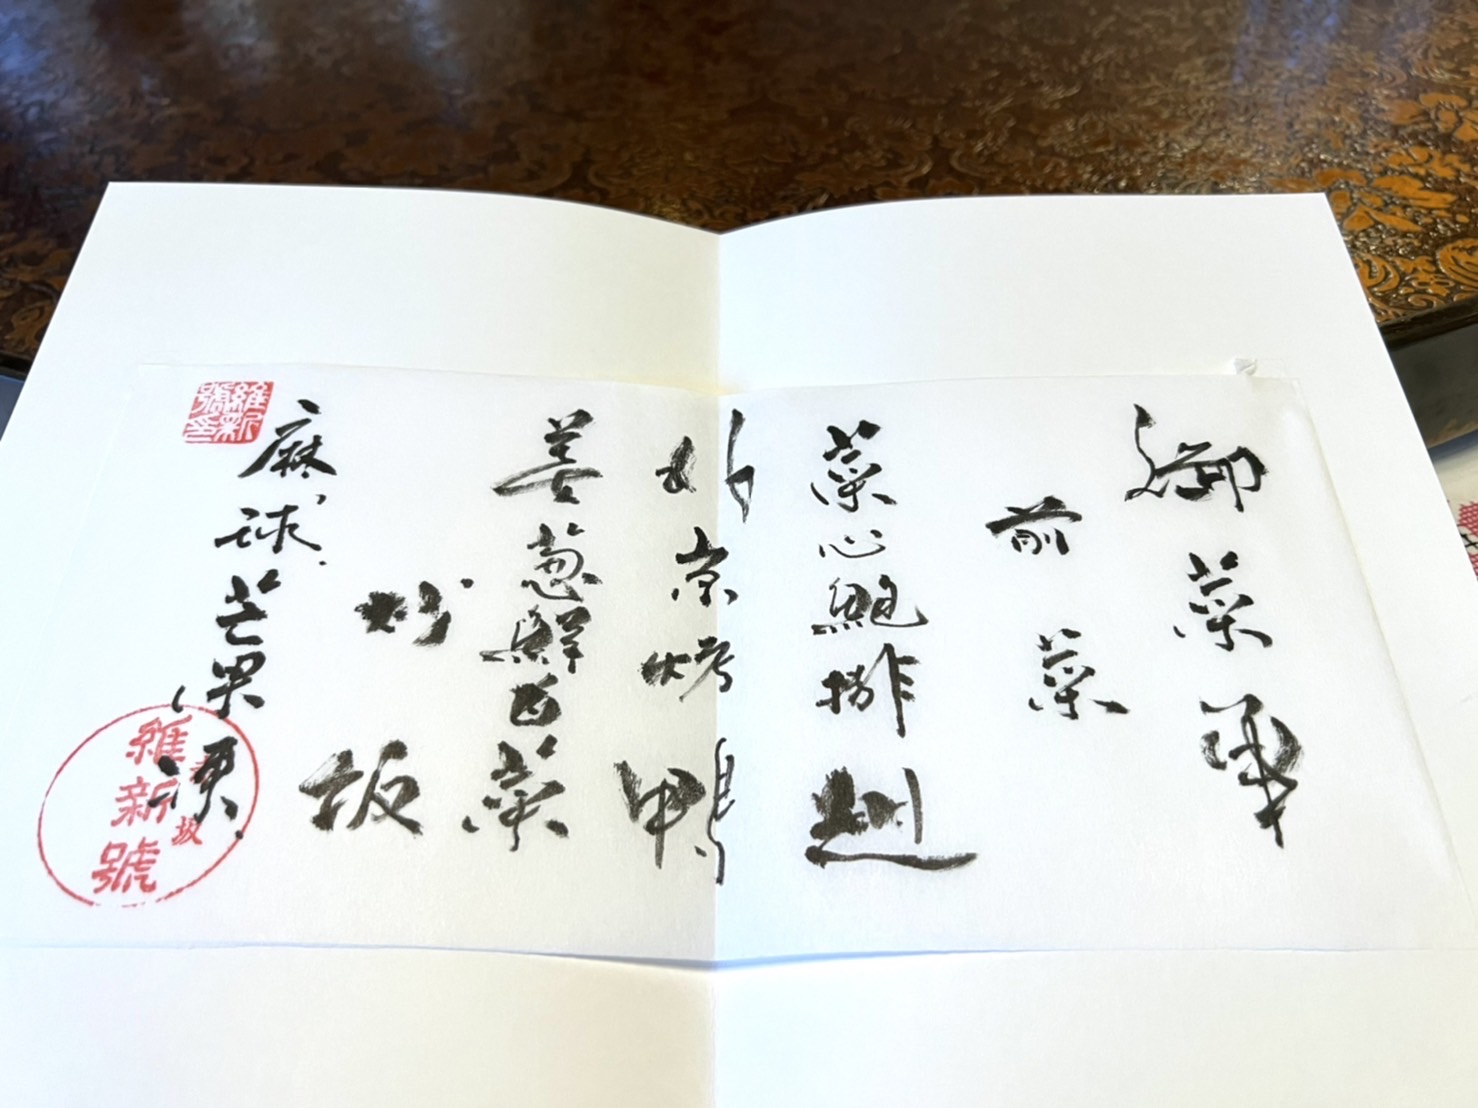 御菜单
前菜
菜心鮑排翅
北京烤鴨
姜葱鮮 菜
炒飯
麻球芒果凍
維新號印
赤坂
維新號